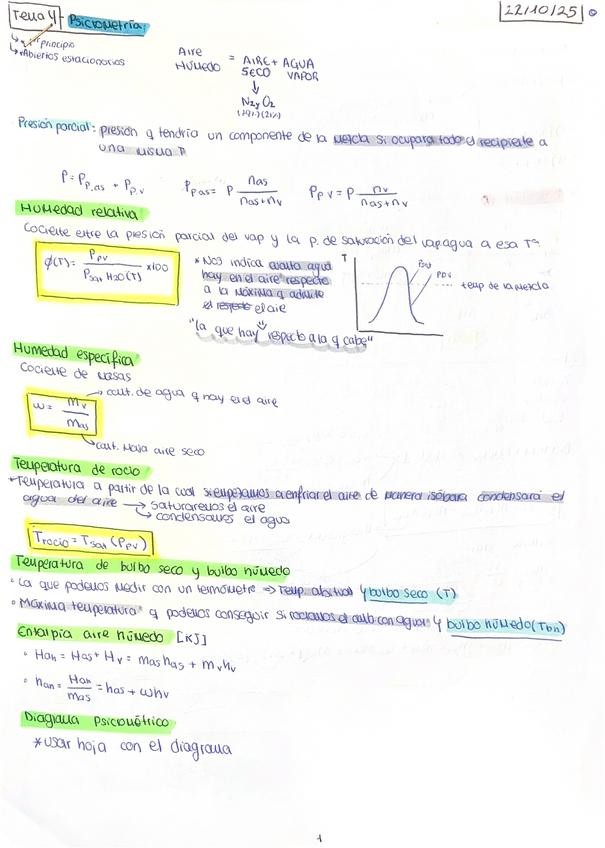 Tema 4 - Psicrometría:
22/10/25
principio
Abiertos estacionarios
Aire Húmedo = AIRE SECO + AGUA VAPOR
N2 y O2
(79%) (21%)
Presión parcial: presión q tendría un componente de la mezcla si ocupara todo el recipiente a
una misma T
P = Pp,as + Pp,v    Pp as = P nas/(nas+nv)    Pp v = P nv/(nas+nv)
Humedad relativa
Cociente entre la presión parcial del vap y la p. de saturación del vap.agua a esa Tª
ϕ(T) = Ppv / Psat H2O(T) x100
*Nos indica cuanta agua
hay en el aire respecto
a la máxima q admite
el respecto el aire
"la que hay respecto a la q cabe"
T
temp de la mezcla
Humedad específica
Cociente de masas
ω = mv / mas
cant. de agua q hay en el aire
cant. masa aire seco
Temperatura de rocío
*Temperatura a partir de la cual si empezamos a enfriar el aire de manera isóbara condensará el
agua del aire → saturaremos el aire
→ condensamos el agua
Trocío = Tsat (Ppv)
Temperatura de bulbo seco y bulbo húmedo
° La que podemos medir con un termómetro ⇒ Temp. absoluta y bulbo seco (T)
° Máxima temperatura q podemos conseguir si rociamos el con agua y bulbo húmedo (Tbh)
Entalpía aire húmedo [KJ]
° Hah = Has + Hv = mas has + mv hv
° hah = Hah/mas = has + ωhv
Diagrama Psicrométrico
*usar hoja con el diagrama
1